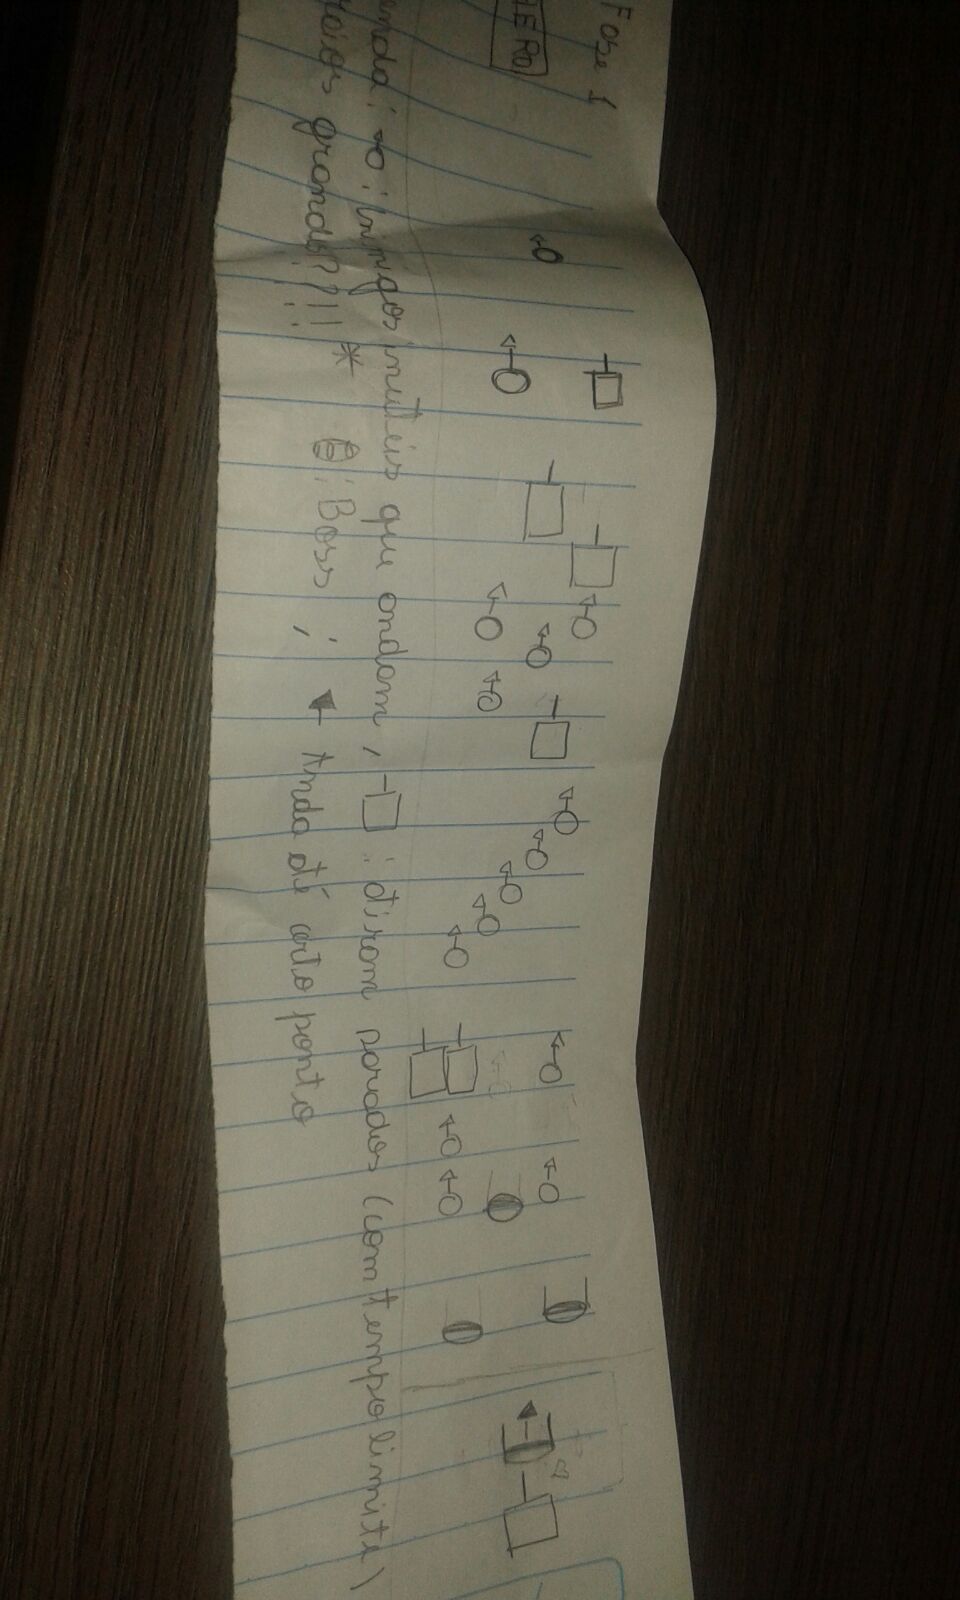 Fase 1
HERO
enda: o: inimigos inuteis que andam, : atiram parados (com tempo limite)
raios grands??!! * : Boss ; Anda até certo ponto